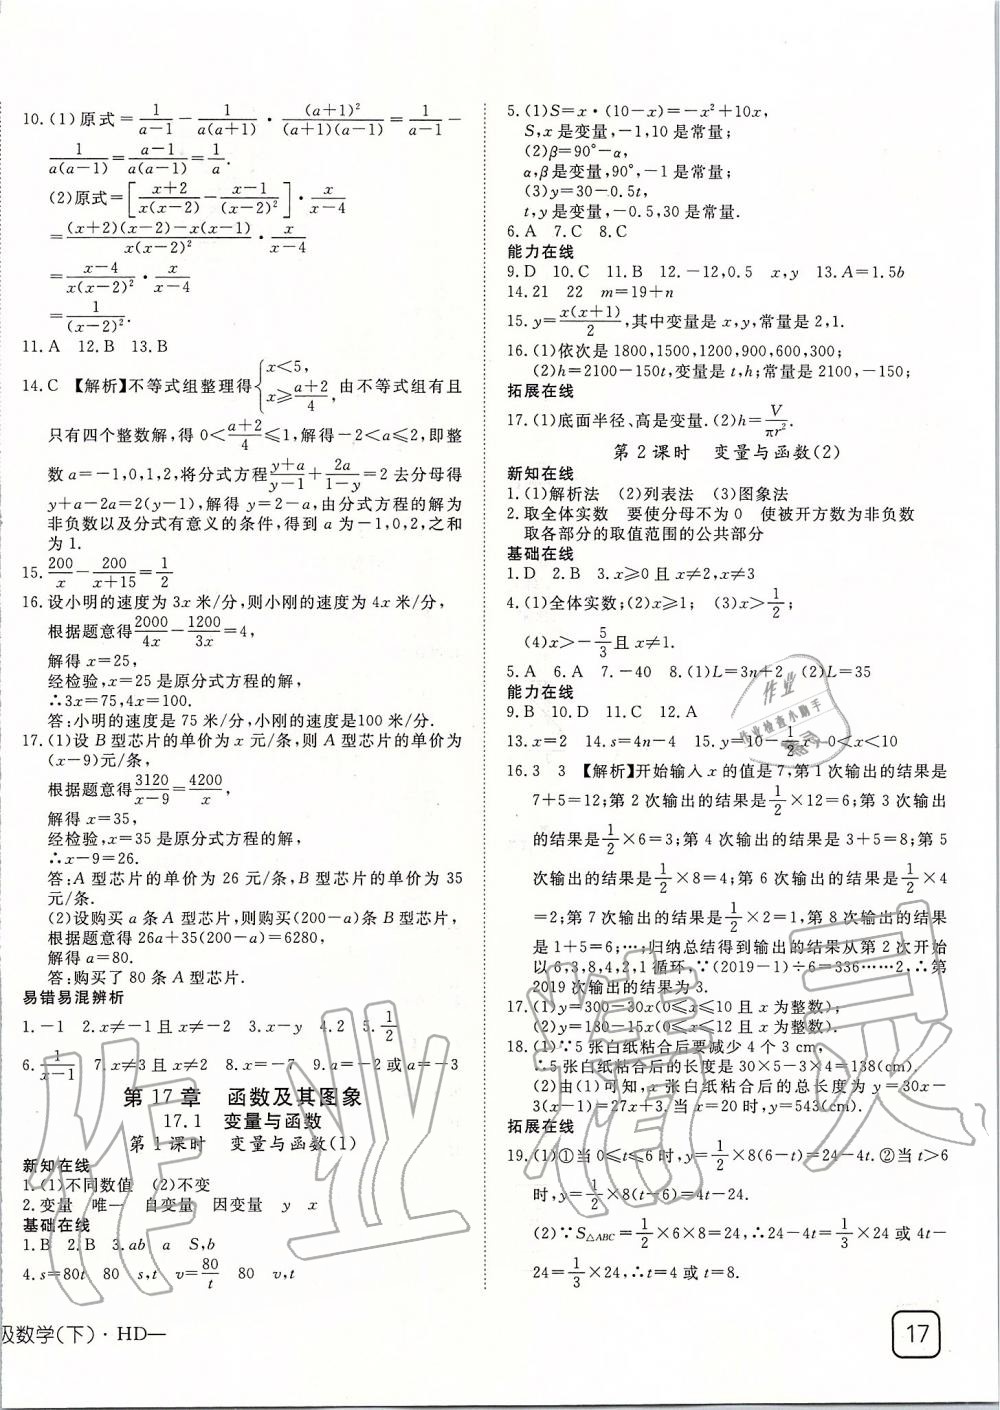 10.(1)原式=1/(a-1)-1/(a(a+1))·(a+1)²/((a+1)(a-1))=1/(a-1)-
1/(a(a-1))=(a-1)/(a(a-1))=1/a.
(2)原式=[(x+2)/(x(x-2))-(x-1)/(x-2)²]·x/(x-4)
=((x+2)(x-2)-x(x-1))/(x(x-2)²)·x/(x-4)
=(x-4)/(x(x-2)²)·x/(x-4)
=1/(x-2)².
11.A 12.B 13.B
14.C 【解析】不等式组整理得{x<5, x≥(a+2)/4, 由不等式组有且
只有四个整数解,得 0<(a+2)/4≤1,解得-2<a≤2,即整
数 a=-1,0,1,2,将分式方程(y+a)/(y-1)+2a/(1-y)=2去分母得
y+a-2a=2(y-1),解得 y=2-a,由分式方程的解为
非负数以及分式有意义的条件,得到 a 为-1,0,2,之和
为 1.
15.200/x-200/(x+15)=1/2
16.设小明的速度为 3x 米/分,则小刚的速度为 4x 米/分,
根据题意得2000/4x-1200/3x=4,
解得 x=25,
经检验,x=25 是原分式方程的解,
∴3x=75,4x=100.
答:小明的速度是 75 米/分,小刚的速度是100 米/分.
17.(1)设 B 型芯片的单价为 x 元/条,则 A 型芯片的单价为
(x-9)元/条,
根据题意得3120/(x-9)=4200/x,
解得 x=35,
经检验,x=35 是原分式方程的解,
∴x-9=26.
答:A 型芯片的单价为 26 元/条,B 型芯片的单价为 35
元/条.
(2)设购买 a 条 A 型芯片,则购买(200-a)条 B 型芯片,
根据题意得 26a+35(200-a)=6280,
解得 a=80.
答:购买了 80 条 A 型芯片.
易错易混辨析
1.-1 2.x≠-1且 x≠-2 3.x-y 4.2 5.1/2
6.1/(x-1) 7.x≠3 且 x≠2 8.x=-7 9.a=-2 或 a=-3
第 17 章 函数及其图象
17.1 变量与函数
第 1 课时 变量与函数(1)
新知在线
1.(1)不同数值 (2)不变
2.变量 唯一 自变量 因变量 y x
基础在线
1.B 2.B 3.ab a S,b
4.s=80t 80 s,t v=80/t 80 v,t
级数学(下)·HD—
5.(1)S=x·(10-x)=-x²+10x,
S,x 是变量,-1,10 是常量;
(2)β=90°-α,
α,β是变量,90°,-1 是常量;
(3)y=30-0.5t,
t,y 是变量,-0.5,30 是常量.
6.A 7.C 8.C
能力在线
9.D 10.C 11.B 12.-12,0.5 x,y 13.A=1.5b
14.21 22 m=19+n
15.y=x(x+1)/2,其中变量是 x,y,常量是 2,1.
16.(1)依次是 1800,1500,1200,900,600,300;
(2)h=2100-150t,变量是 t,h;常量是 2100,-150;
拓展在线
17.(1)底面半径、高是变量.(2)h=V/πr².
第 2 课时 变量与函数(2)
新知在线
1.(1)解析法 (2)列表法 (3)图象法
2.取全体实数 要使分母不为 0 使被开方数为非负数
取各部分的取值范围的公共部分
基础在线
1.D 2.B 3.x≥0 且 x≠2,x≠3
4.(1)全体实数;(2)x≥1; (3)x>1/2;
(4)x>-5/3且 x≠1.
5.A 6.A 7.-40 8.(1)L=3n+2 (2)L=35
能力在线
9.B 10.D 11.C 12.A
13.x=2 14.s=4n-4 15.y=10-1/2x 0<x<10
16.3 3 【解析】开始输入 x 的值是 7,第 1 次输出的结果是
7+5=12;第 2 次输出的结果是1/2×12=6;第 3 次输出
的结果是1/2×6=3;第 4 次输出的结果是 3+5=8;第 5
次输出的结果是1/2×8=4;第 6 次输出的结果是1/2×4
=2;第 7 次输出的结果是1/2×2=1;第 8 次输出的结果
是 1+5=6;…;归纳总结得到输出的结果从第 2 次开始
以 6,3,8,4,2,1 循环,∵(2019-1)÷6=336……2,∴第
2019 次输出的结果为 3.
17.(1)y=300-30x(0≤x≤10 且 x 为整数);
(2)y=180-15x(0≤x≤12 且 x 为整数).
18.(1)∵5 张白纸粘合后要减少 4 个 3 cm,
∴5 张白纸粘合后的长度是 30×5-3×4=138(cm).
(2)由(1)可知,x 张白纸粘合后的总长度为 y=30x-
3(x-1)=27x+3.当 x=20 时,y=543(cm).
拓展在线
19.(1)①当 0≤t≤6时,y=1/2×8(6-t)=24-4t.②当 t>6
时,y=1/2×8(t-6)=4t-24.
(2)∵S△ABC=1/2×6×8=24,∴24-4t=1/3×24 或 4t-
24=1/3×24,∴t=4 或 t=8.
17
作业
作业检查小助手
作业精灵